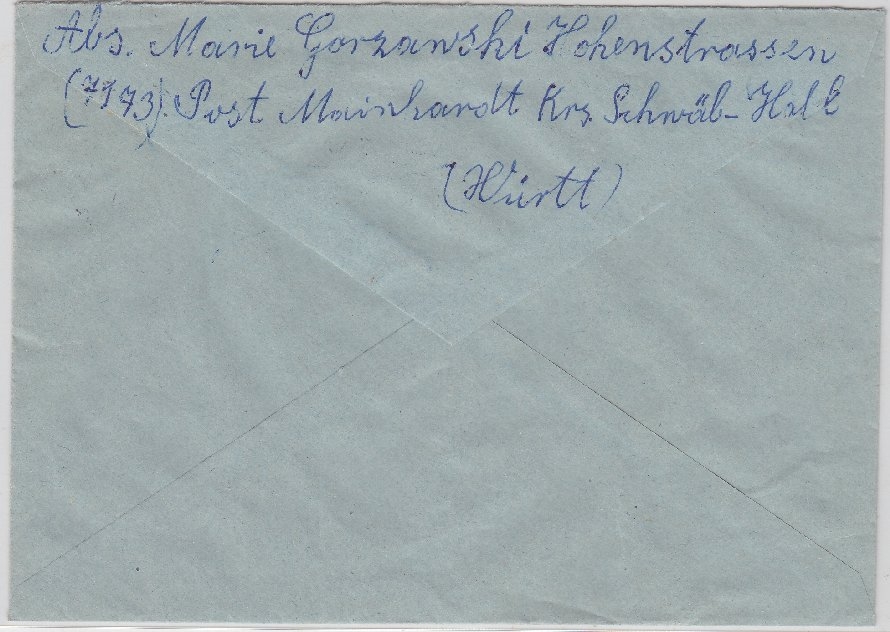 Abs. Marie Gorzawski Hohenstrassen
(7173). Post Mainhardt Krs. Schwäb-Hall
(Württ)